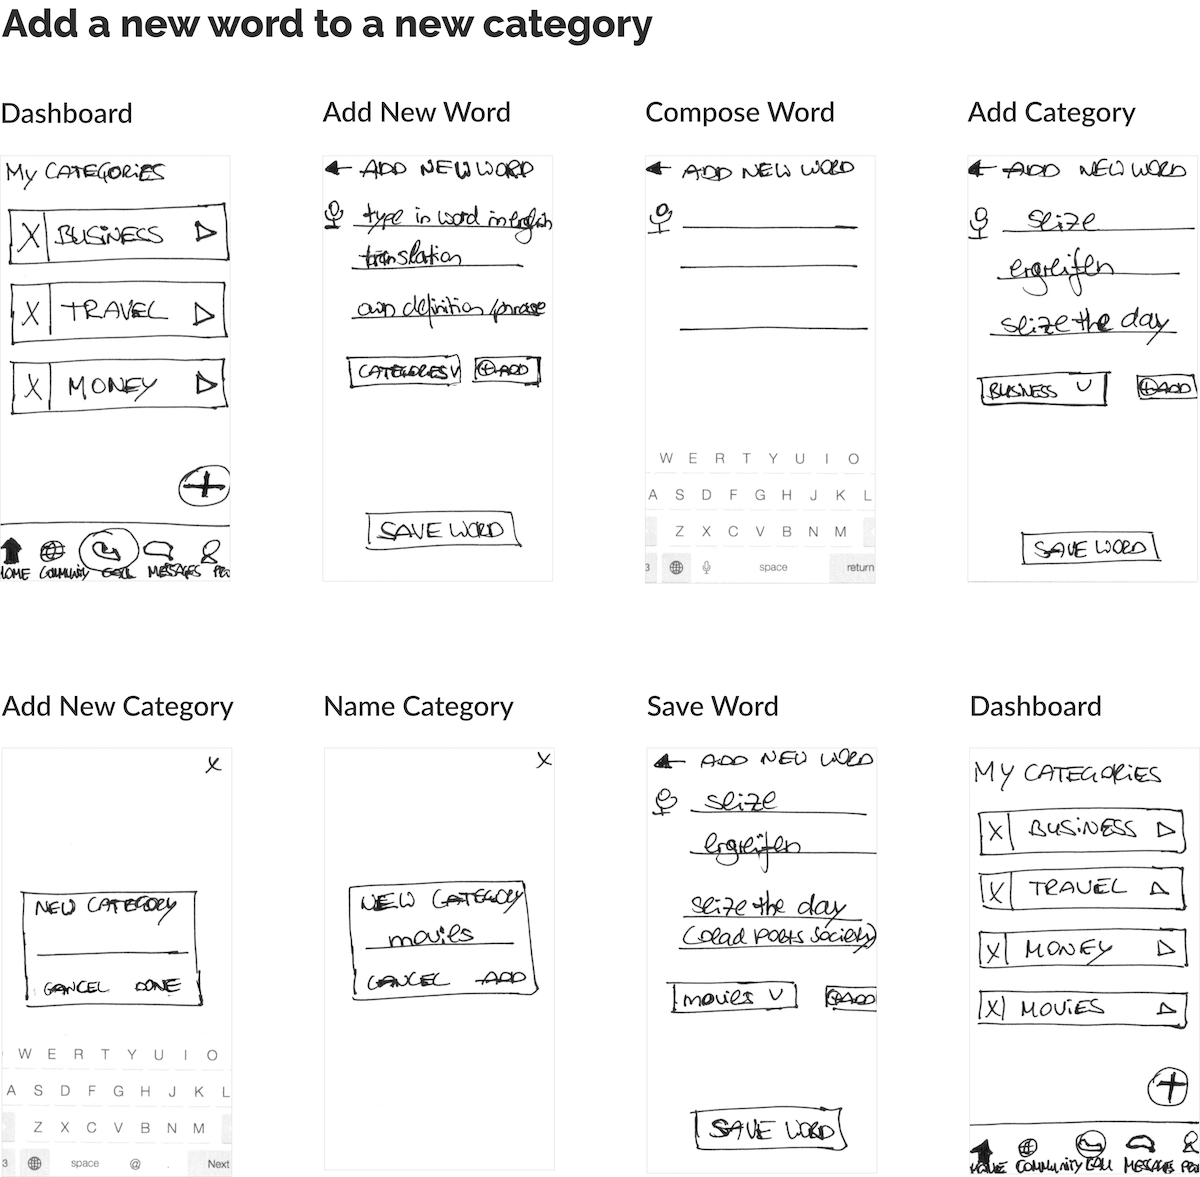 Add a new word to a new category
Dashboard
My CATEGORIES
X BUSINESS
X TRAVEL
X MONEY
+
HOME COMMUNITY CALL MESSAGES
Add New Word
ADD NEW WORD
type in word in english
translation
own definition/phrase
CATEGORIES V + ADD
SAVE WORD
Compose Word
ADD NEW WORD
W E R T Y U I O
A S D F G H J K L
Z X C V B N M
3 space return
Add Category
ADD NEW WORD
seize
ergreifen
seize the day
BUSINESS V + ADD
SAVE WORD
Add New Category
X
NEW CATEGORY
CANCEL DONE
W E R T Y U I O
A S D F G H J K L
Z X C V B N M
3 space @ . Next
Name Category
X
NEW CATEGORY
movies
CANCEL ADD
Save Word
ADD NEW WORD
seize
ergreifen
seize the day
(Dead Poets Society)
movies V + ADD
SAVE WORD
Dashboard
MY CATEGORIES
X BUSINESS
X TRAVEL
X MONEY
X MOVIES
+
HOME COMMUNITY CALL MESSAGES